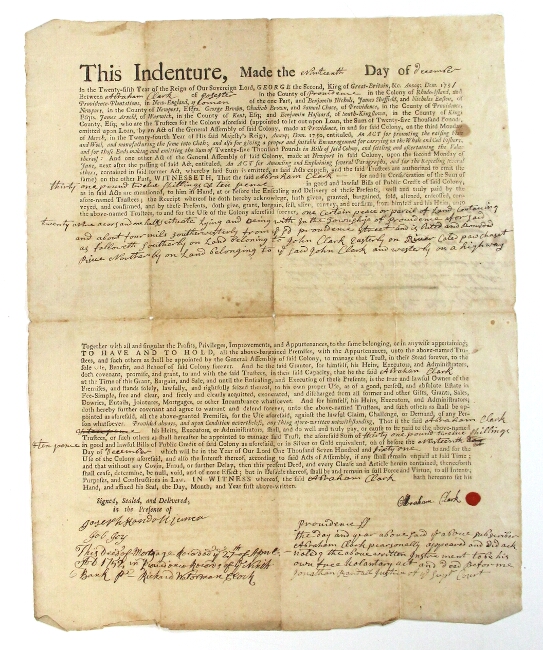 This Indenture, Made the Nineteenth Day of December
In the Twenty-fifth Year of the Reign of Our Sovereign Lord, GEORGE the Second, King of Great-Britain, &c. Annoq; Dom. 1751
Between Abraham Clark of in the County of Providence in the Colony of Rhode-Island, and
Providence-Plantations, in New-England, Yeoman of the one Part, and Benjamin Nichols, James Sheffield, and Nicholas Easton, of
Newport, in the County of Newport, Esqrs. George Brown, and Daniel of Providence, in the County of
James Arnold, of Warwick, in the County of Kent, Esq; and Benjamin Hazard, of North-Kingstown, in the County of Kings
County, Esq; who are the Trustees for the Colony aforesaid appointed to let out upon Loan, the Sum of Twenty-five Thousand Pounds,
emitted upon Loan, by an Act of the General Assembly of said Colony, made at Providence, in and for said Colony, on the third Monday
of March, in the Twenty-fourth Year of His said Majesty's Reign, Annoq; Dom. 1750, entituled, An ACT for promoting the raising Flax
and Wool, and manufacturing the same into Cloth; and also for giving a proper and suitable Encouragement for carrying on the Whale and Cod Fishery,
and for that End making and emitting the Sum of Twenty-five Thousand Pounds in Bills of said Colony, and stating and ascertaining the Value
thereof: And one other Act of the General Assembly, made at Newport in said Colony, upon the second Monday of
June, next after the passing of said Act, entituled, An ACT for Amending and Explaining several Paragraphs, and for the Repealing several
other, contained in said former Act, whereby said Sum is emitted, as said Acts express, and the said Trustees are authorized to emit the
same) on the other Part, WITNESSETH, That the said Abraham Clark for and in Consideration of the Sum of
thirty one pound twelve shillings & ten pence in good and lawful Bills of Public Credit of said Colony,
as in said Acts are mentioned, to him in Hand, at or before the Ensealing and Delivery of these Presents, well and truly paid by the
above-named Trustees, (the Receipt whereof he doth hereby acknowledge) hath given, granted, bargained, sold, aliened, enfeoffed, con-
veyed, and confirmed, and by these Presents, doth give, grant, bargain, sell, alien, convey, and confirm, from him and his Heirs, unto
the above-named Trustees, to and for the Use of the Colony aforesaid forever, one certain peace or parcil of Land containing
twenty acres situate lying and being with in the Township of Providence afore said
and about four mile southwesterly from Providence Street and is buted and bounded
as followeth Southerly on Land belonging to John Clark Easterly on Late purchased
Northerly on Land belonging to said John Clark and westerly on a highway
Together with all and singular the Profits, Privileges, Improvements, and Appurtenances, to the same belonging, or in anywise appertaining;
TO HAVE AND TO HOLD, all the above-bargained Premises, with the Appurtenances, unto the above-named Trus-
tees, and such others as shall be appointed by the General Assembly of said Colony, to manage that Trust, in their Stead forever, to the
sole Use, Benefit, and Behoof of said Colony forever. And he the said Grantor, for himself, his Heirs, Executors, and Administrators,
doth covenant, promise, and grant, to and with the said Trustees, in their said Capacity, that he the said Abraham Clark
at the Time of this Grant, Bargain, and Sale, and until the Ensealing, and Executing of these Presents, is the true and lawful Owner of the
Premises, and stands solely, lawfully, and rightfully seized thereof, to his own proper Use, as of a good, perfect, and absolute Estate in
Fee-Simple, free and clear, and freely and clearly acquitted, exonerated, and discharged from all former and other Gifts, Grants, Sales,
Dowries, Entails, Jointures, Mortgages, or other Incumbrance whatsoever. And for himself, his Heirs, Executors, and Administrators,
doth hereby further covenant and agree to warrant and defend forever, unto the above-named Trustees, and such others as shall be ap-
pointed as aforesaid, all the above-granted Premises, for the Use aforesaid, against the lawful Claim, Challenge, or Demand, of any Per-
son whatsoever. Provided always, and upon Condition nevertheless, any Thing afore-written notwithstanding, That if the said Abraham Clark
his Heirs, Executors, or Administrators, shall and do well and truly pay, or cause to be paid to the above-named
Trustees, or such others as shall hereafter be appointed to manage said Trust, the aforesaid Sum of thirty one pound twelve shillings
& ten pence in good and lawful Bills of Public Credit of said Colony as aforesaid, at or before the Nineteenth Day
Day of December which will be in the Year of Our Lord One Thousand Seven Hundred and Sixty one to and for the
Use of the Colony aforesaid, and also the Interest thereof, according to said Acts of Assembly, if any shall remain unpaid at said Time;
and that without any Covin, Fraud, or farther Delay, then this present Deed, and every Clause and Article herein contained, thenceforth
shall cease, determine, be null, void, and of none Effect; but in Default thereof, shall be and remain in full Force and Virtue, to all Intents,
Purposes, and Constructions in Law. IN WITNESS whereof, the said Abraham Clark hath hereunto set his
Hand, and affixed his Seal, the Day, Month, and Year first above-written.
Signed, Sealed, and Delivered,
in the Presence of
Abraham Clark
Joseph
Job
This deed of Mortgage Recorded April
AD 1752 in Providence Records of
Richard Waterman Clerk
Providence ss
the day and year above said the above subscriber
Abraham Clark personally appeared and did ack-
nowledg the above written Instrument to be his
own free Voluntary act and deed before me
Jonathan Randall Justice of Court